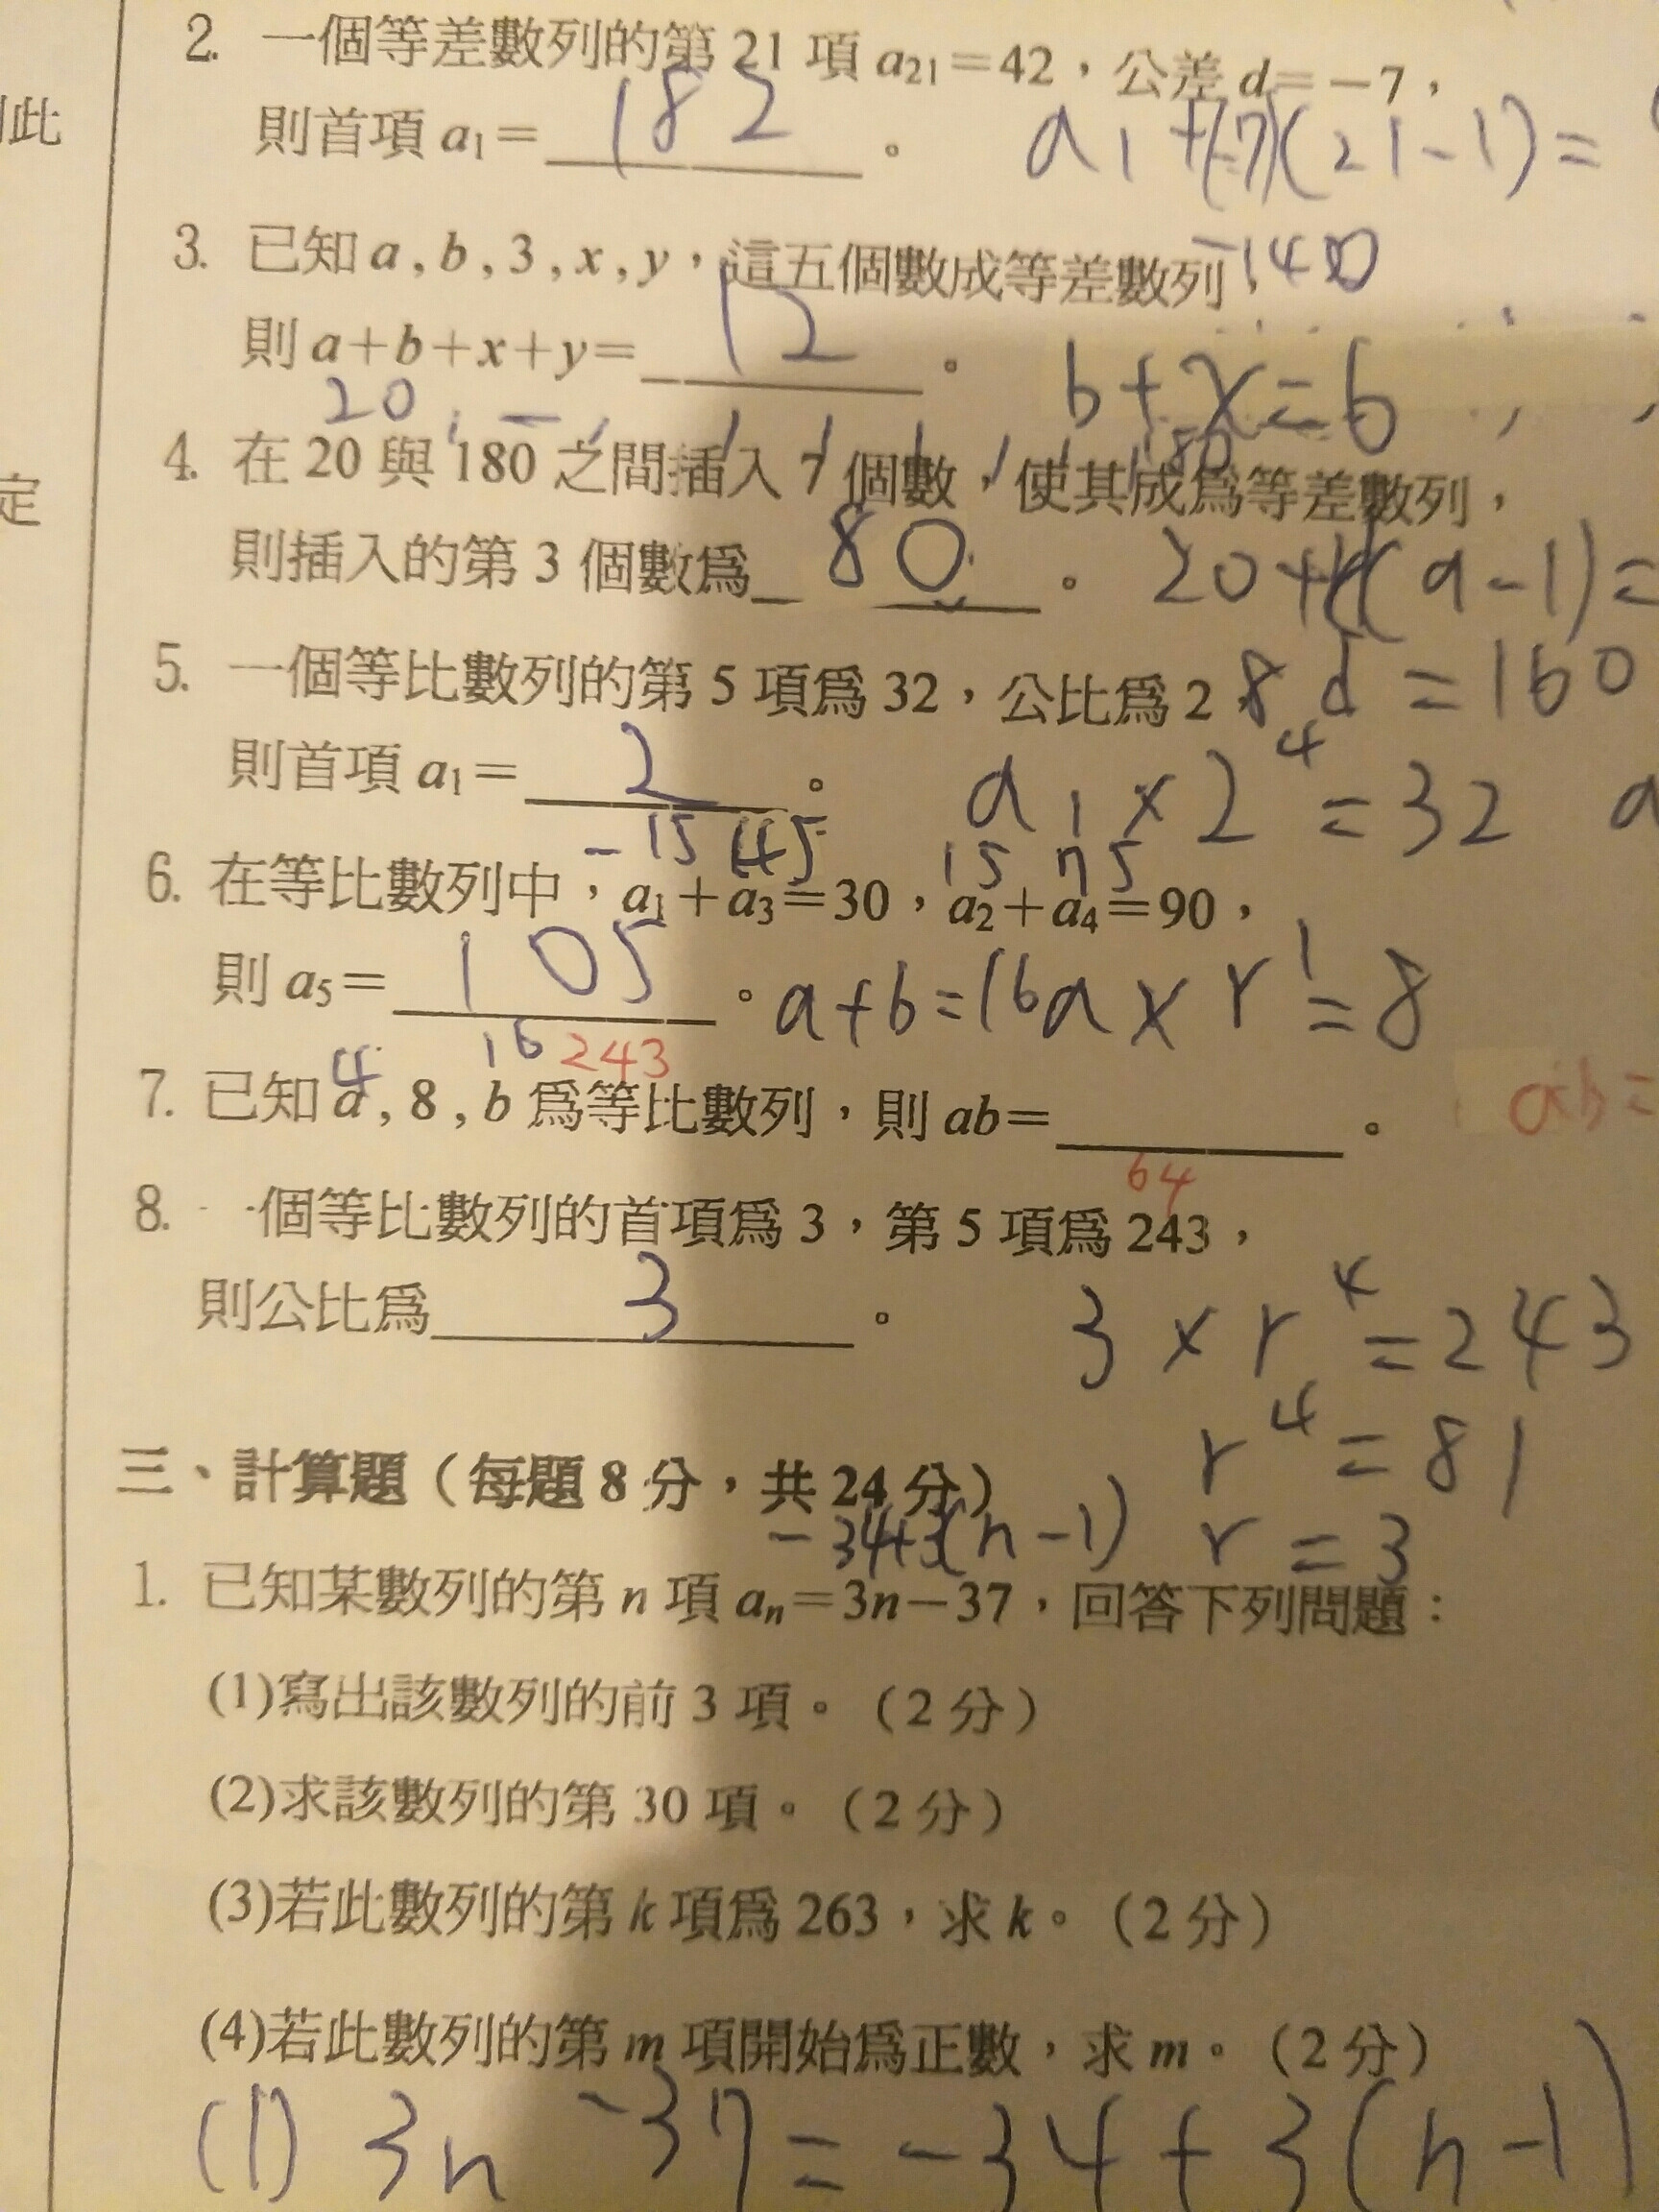 2. 一個等差數列的第 21 項 a21=42，公差 d=-7，
則首項 a1= 182 。 a1+(-7)(21-1)=
-140
此
3. 已知 a , b , 3 , x , y，這五個數成等差數列，
則 a+b+x+y= 12 。 b+x=6
20 180
4. 在 20 與 180 之間插入 7 個數，使其成為等差數列，
定
則插入的第 3 個數為 80 。 20+d(9-1)=
8d=160
5. 一個等比數列的第 5 項為 32，公比為 2
則首項 a1= 2 。 a1×2^4=32 a
-15 45 15 75
6. 在等比數列中，a1+a3=30，a2+a4=90，
則 a5= 105 。 a+b=16 a×r^1=8
4 16 243
7. 已知 a , 8 , b 為等比數列，則 ab= 。 ab=
64
8. 一個等比數列的首項為 3，第 5 項為 243，
則公比為 3 。 3×r^4=243
r^4=81
r=3
三、計算題（每題 8 分，共 24 分）
-34+3(n-1)
1. 已知某數列的第 n 項 an=3n-37，回答下列問題：
(1)寫出該數列的前 3 項。（2 分）
(2)求該數列的第 30 項。（2 分）
(3)若此數列的第 k 項為 263，求 k。（2 分）
(4)若此數列的第 m 項開始為正數，求 m。（2 分）
(1) 3n-37=-34+3(n-1)